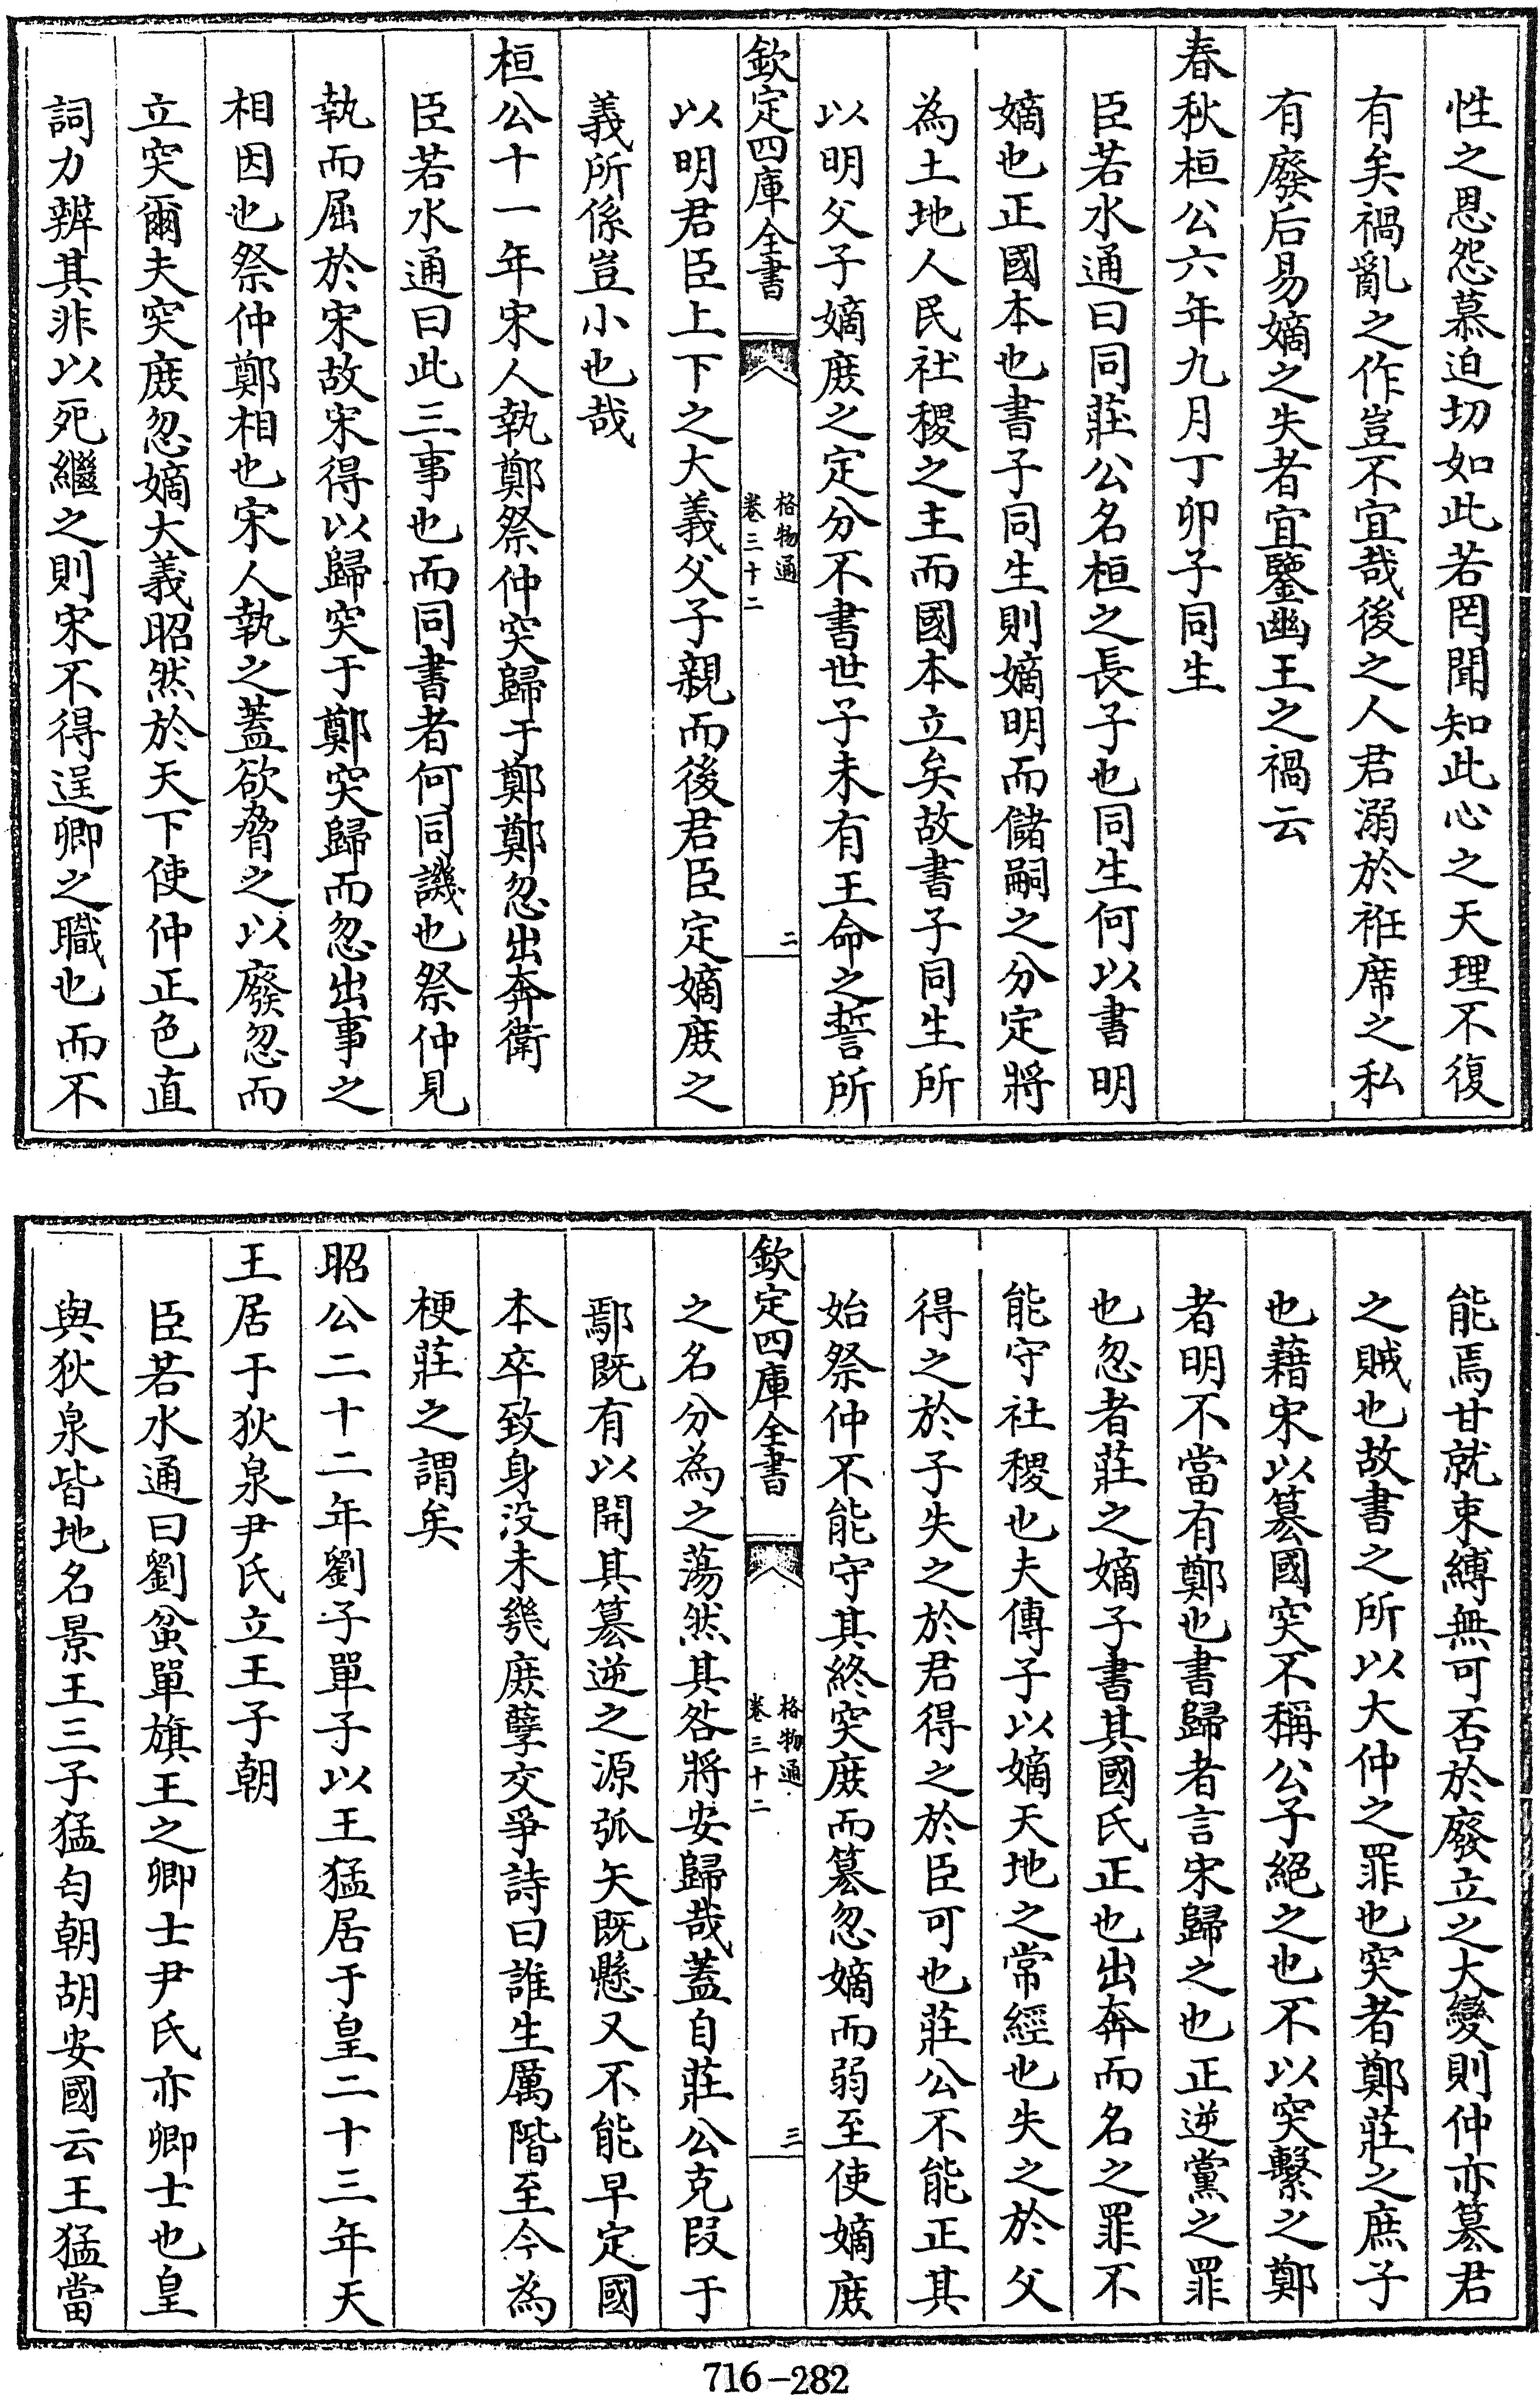 性之恩怨慕迫切如此若罔聞知此心之天理不復
有矣禍亂之作豈不宜哉後之人君溺於袵席之私
有廢后易嫡之失者宜鑒幽王之禍云
春秋桓公六年九月丁卯子同生
臣若水通曰同莊公名桓之長子也同生何以書明
嫡也正國本也書子同生則嫡明而儲嗣之分定將
為土地人民社稷之主而國本立矣故書子同生所
以明父子嫡庶之定分不書世子未有王命之誓所
欽定四庫全書
格物通
卷三十二
二
以明君臣上下之大義父子親而後君臣定嫡庶之
義所係豈小也哉
桓公十一年宋人執鄭祭仲突歸于鄭鄭忽出奔衛
臣若水通曰此三事也而同書者何同譏也祭仲見
執而屈於宋故宋得以歸突于鄭突歸而忽出事之
相因也祭仲鄭相也宋人執之蓋欲脅之以廢忽而
立突爾夫突庶忽嫡大義昭然於天下使仲正色直
詞力辨其非以死繼之則宋不得逞卿之職也而不
能焉甘就束縛無可否於廢立之大變則仲亦簒君
之賊也故書之所以大仲之罪也突者鄭莊之庶子
也藉宋以簒國突不稱公子絕之也不以突繫之鄭
者明不當有鄭也書歸者言宋歸之也正逆黨之罪
也忽者莊之嫡子書其國氏正也出奔而名之罪不
能守社稷也夫傳子以嫡天地之常經也失之於父
得之於子失之於君得之於臣可也莊公不能正其
始祭仲不能守其終突庶而簒忽嫡而弱至使嫡庶
欽定四庫全書
格物通
卷三十二
三
之名分為之蕩然其咎將安歸哉蓋自莊公克段于
鄢既有以開其簒逆之源弧矢既懸又不能早定國
本卒致身沒未幾庶孽交爭詩曰誰生厲階至今為
梗莊之謂矣
昭公二十二年劉子單子以王猛居于皇二十三年天
王居于狄泉尹氏立王子朝
臣若水通曰劉蚠單旗王之卿士尹氏亦卿士也皇
與狄泉皆地名景王三子猛匄朝胡安國云王猛當
716-282